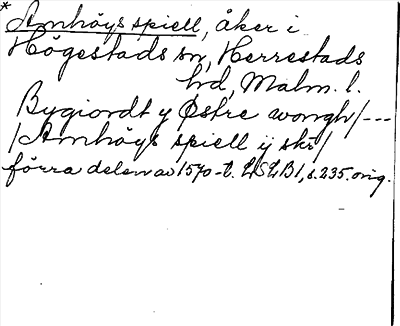 * Amhöys spiell, åker i
Högestads sn, Herrestads
hd, Malm. l.
Bygiordt y Østre wongh/---
/Amhöys spiell ij skr/
förra delen av 1570-t. LSLB1, s. 235. orig.